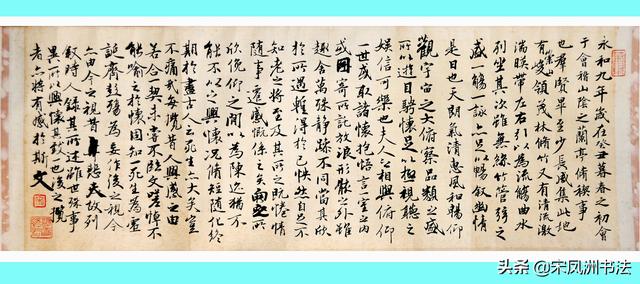 永和九年歲在癸丑暮春之初會
于會稽山陰之蘭亭脩禊事
也群賢畢至少長咸集此地
有崇山峻領茂林脩竹又有清流激
湍暎帶左右引以為流觴曲水
列坐其次雖無絲竹管弦之
盛一觴一詠亦足以暢敘幽情
是日也天朗氣清惠風和暢仰
觀宇宙之大俯察品類之盛
所以遊目騁懷足以極視聽之
娛信可樂也夫人之相與俯仰
一世或取諸懷抱悟言一室之內
或因寄所託放浪形骸之外雖
趣舍萬殊靜躁不同當其欣
於所遇蹔得於己怏然自足不
知老之將至及其所之既惓情
隨事遷感慨係之矣向之所
欣俛仰之閒以為陳迹猶不
能不以之興懷況脩短隨化終
期於盡古人云死生亦大矣豈
不痛哉每攬昔人興感之由
若合一契未嘗不臨文嗟悼不
能喻之於懷固知一死生為虛
誕齊彭殤為妄作後之視今
亦由今之視昔悲夫故列
敘時人錄其所述雖世殊事
異所以興懷其致一也後之攬
者亦將有感於斯文
头条 @宋凤洲书法